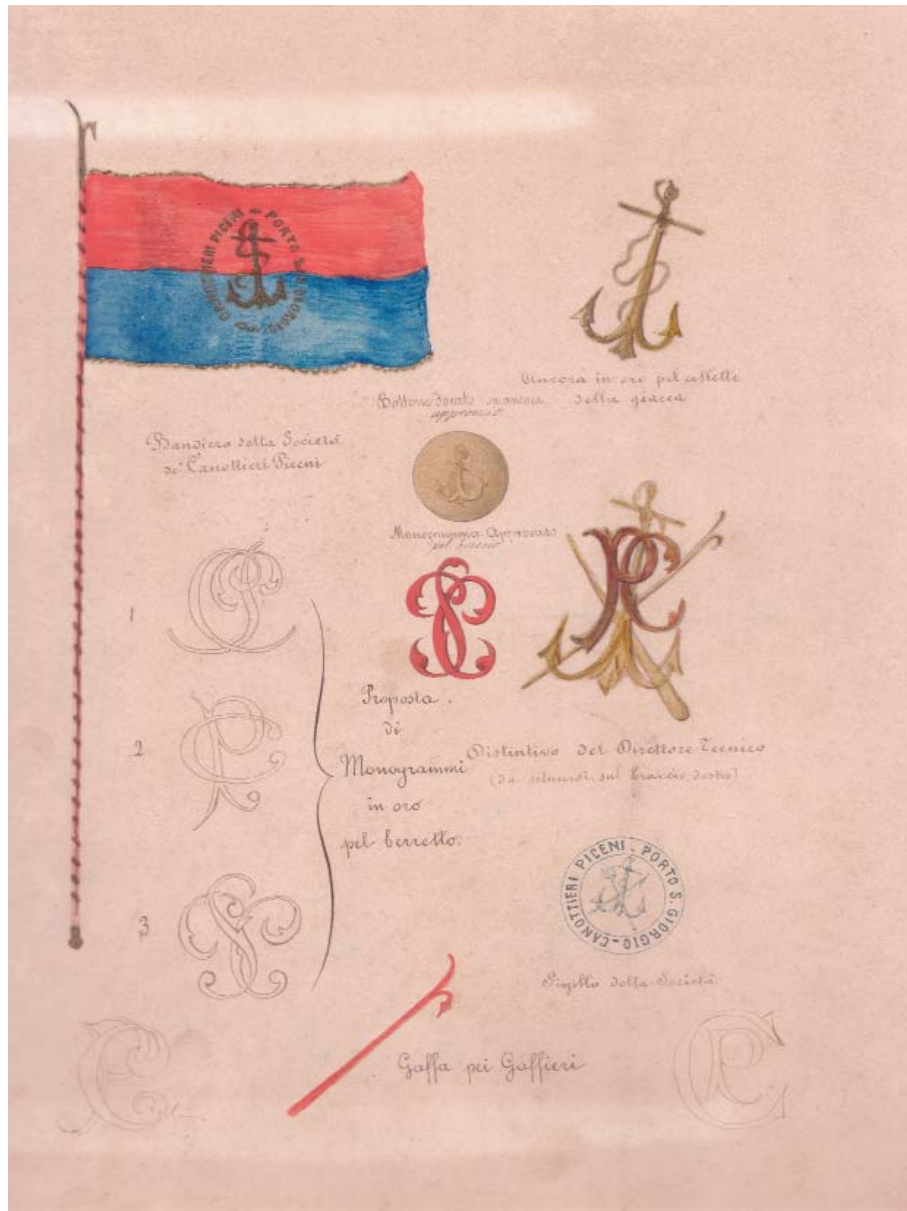 CANOTTIERI PICENI - PORTO S. GIORGIO
Ancora in oro pel colletto
della giacca
Bottone dorato
approvato
Bandiera della Società
de' Canottieri Piceni
Monogramma Approvato
pel
1
2
3
Proposta
di
Monogrammi
in oro
pel berretto.
Distintivo del Direttore Tecnico
(da situarsi sul braccio destro)
CANOTTIERI PICENI - PORTO S. GIORGIO -
Sigillo della Società
Gaffa pei Gaffieri